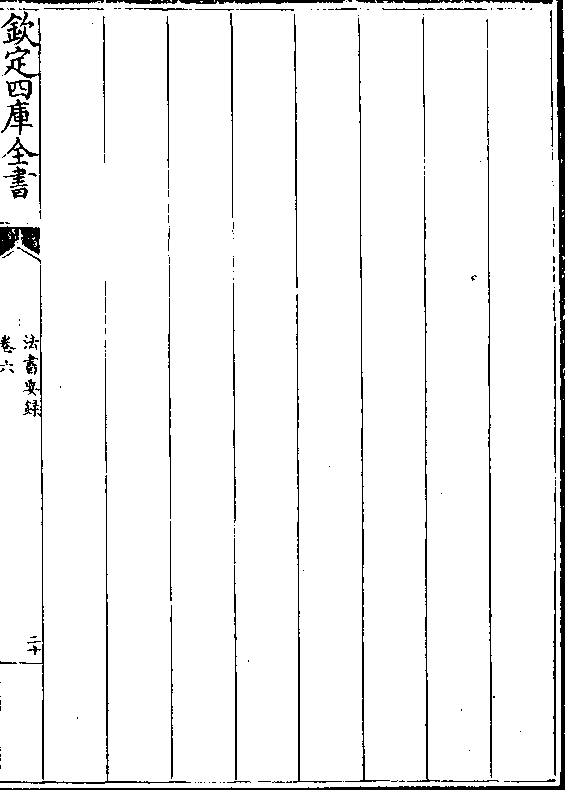 欽定四庫全書
法書要録
卷六
二十